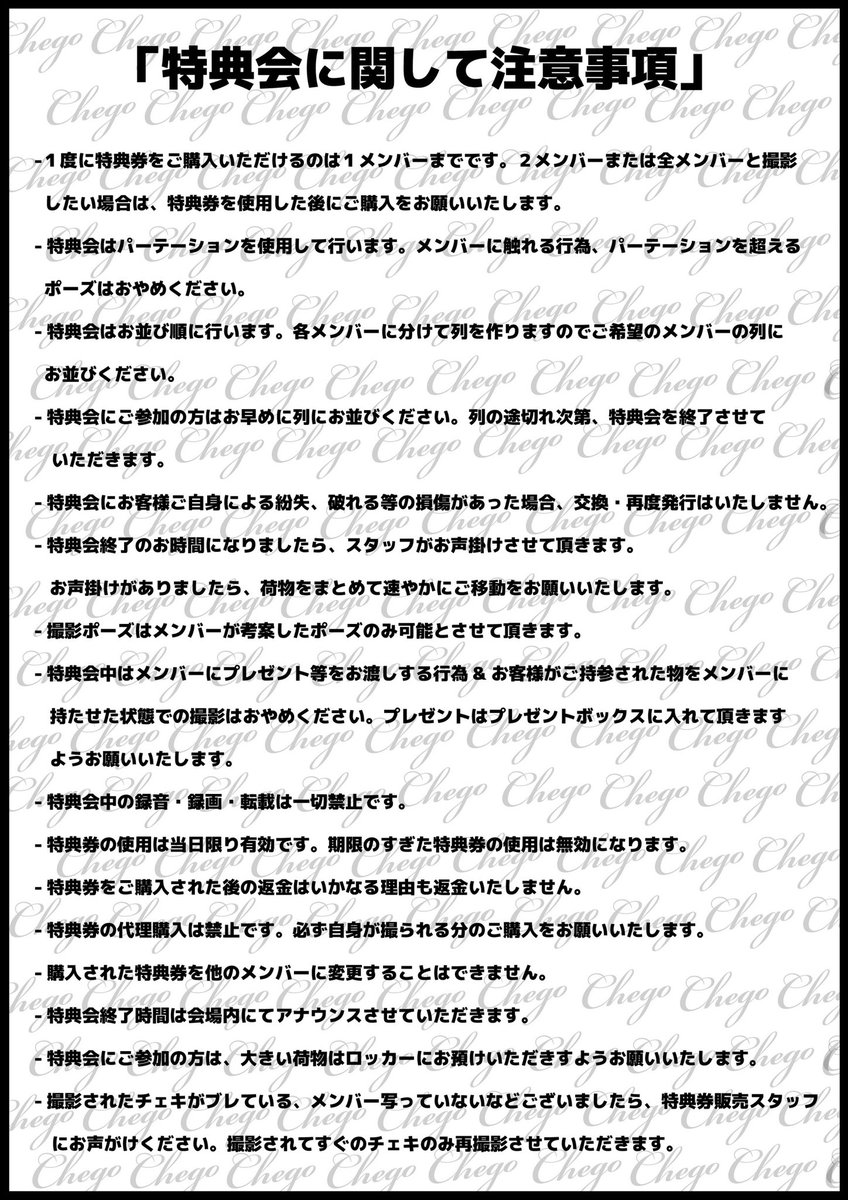 「特典会に関して注意事項」
-1度に特典券をご購入いただけるのは1メンバーまでです。2メンバーまたは全メンバーと撮影
したい場合は、特典券を使用した後にご購入をお願いいたします。
- 特典会はパーテーションを使用して行います。メンバーに触れる行為、パーテーションを超える
ポーズはおやめください。
- 特典会はお並び順に行います。各メンバーに分けて列を作りますのでご希望のメンバーの列に
お並びください。
- 特典会にご参加の方はお早めに列にお並びください。列の途切れ次第、特典会を終了させて
いただきます。
- 特典会にお客様ご自身による紛失、破れる等の損傷があった場合、交換・再度発行はいたしません。
- 特典会終了のお時間になりましたら、スタッフがお声掛けさせて頂きます。
お声掛けがありましたら、荷物をまとめて速やかにご移動をお願いいたします。
- 撮影ポーズはメンバーが考案したポーズのみ可能とさせて頂きます。
- 特典会中はメンバーにプレゼント等をお渡しする行為 & お客様がご持参された物をメンバーに
持たせた状態での撮影はおやめください。プレゼントはプレゼントボックスに入れて頂きます
ようお願いいたします。
- 特典会中の録音・録画・転載は一切禁止です。
- 特典券の使用は当日限り有効です。期限のすぎた特典券の使用は無効になります。
- 特典券をご購入された後の返金はいかなる理由も返金いたしません。
- 特典券の代理購入は禁止です。必ず自身が撮られる分のご購入をお願いいたします。
- 購入された特典券を他のメンバーに変更することはできません。
- 特典会終了時間は会場内にてアナウンスさせていただきます。
- 特典会にご参加の方は、大きい荷物はロッカーにお預けいただきすようお願いいたします。
- 撮影されたチェキがブレている、メンバー写っていないなどございましたら、特典券販売スタッフ
にお声がけください。撮影されてすぐのチェキのみ再撮影させていただきます。
Chego